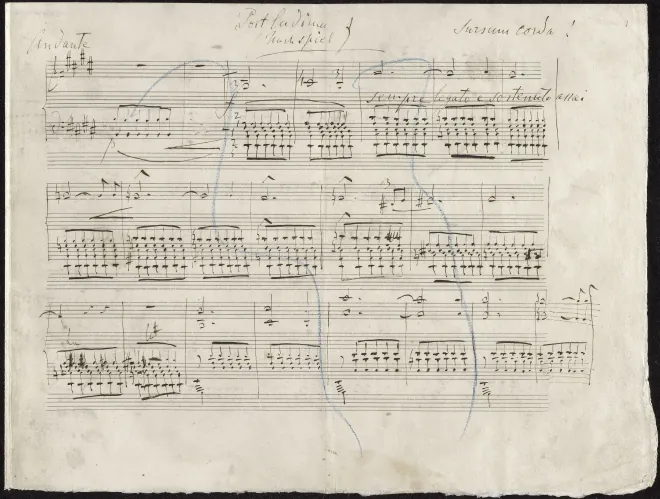 Postludium }
Nachspiel
Sursum corda !
Andante
sempre legato e sostenuto assai